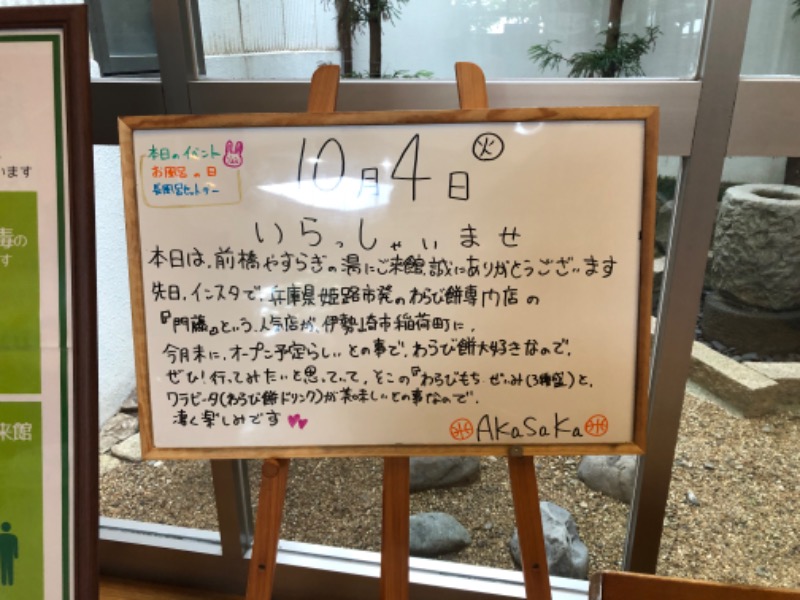 います
毒の
す
来館
本日のイベント
お風呂の日
長風呂セットデー
10月4日 火
いらっしゃいませ
本日は、前橋やすらぎの湯にご来館、誠にありがとうございます
先日、インスタで、兵庫県姫路市発のわらび餅専門店の
『門藤』という、人気店が、伊勢崎市稲荷町に、
今月末に、オープン予定らしいとの事で、わらび餅大好きなので、
ぜひ!行ってみたいと思っていて、そこの『わらびもち ぜいみ(3種盛)と、
ワラビータ(わらび餅ドリンク)が美味しいとの事なので、
凄く楽しみです
AKaSaKa